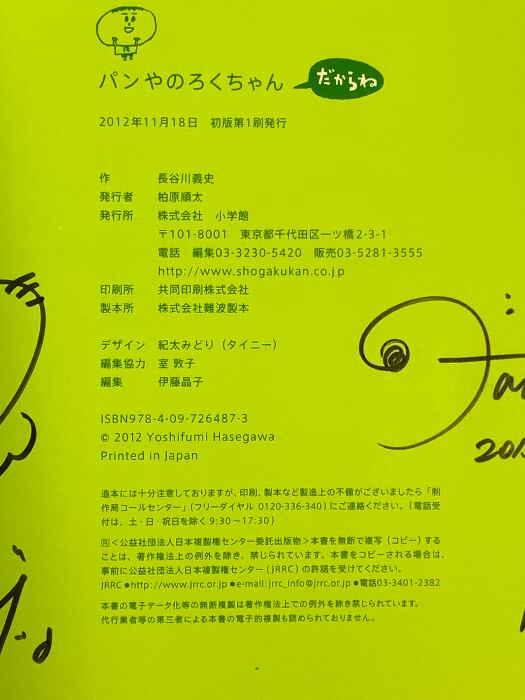 パンやのろくちゃん だからね
2012年11月18日　初版第1刷発行
作　長谷川義史
発行者　柏原順太
発行所　株式会社　小学館
〒101-8001　東京都千代田区一ツ橋2-3-1
電話　編集03-3230-5420　販売03-5281-3555
http://www.shogakukan.co.jp
印刷所　共同印刷株式会社
製本所　株式会社難波製本
デザイン　紀太みどり（タイニー）
編集協力　室 敦子
編集　伊藤晶子
ISBN978-4-09-726487-3
© 2012 Yoshifumi Hasegawa
Printed in Japan
造本には十分注意しておりますが、印刷、製本など製造上の不備がございましたら「制
作局コールセンター」（フリーダイヤル 0120-336-340）にご連絡ください。（電話受
付は、土・日・祝日を除く 9:30～17:30）
Ⓡ＜公益社団法人日本複製権センター委託出版物＞本書を無断で複写（コピー）する
ることは、著作権法上の例外を除き、禁じられています。本書をコピーされる場合は、
事前に公益社団法人日本複製権センター（JRRC）の許諾を受けてください。
JRRC ●http://www.jrrc.or.jp ●e-mail:jrrc_info@jrrc.or.jp ●電話03-3401-2382
本書の電子データ化等の無断複製は著作権法上での例外を除き禁じられています。
代行業者等の第三者による本書の電子的複製も認められておりません。